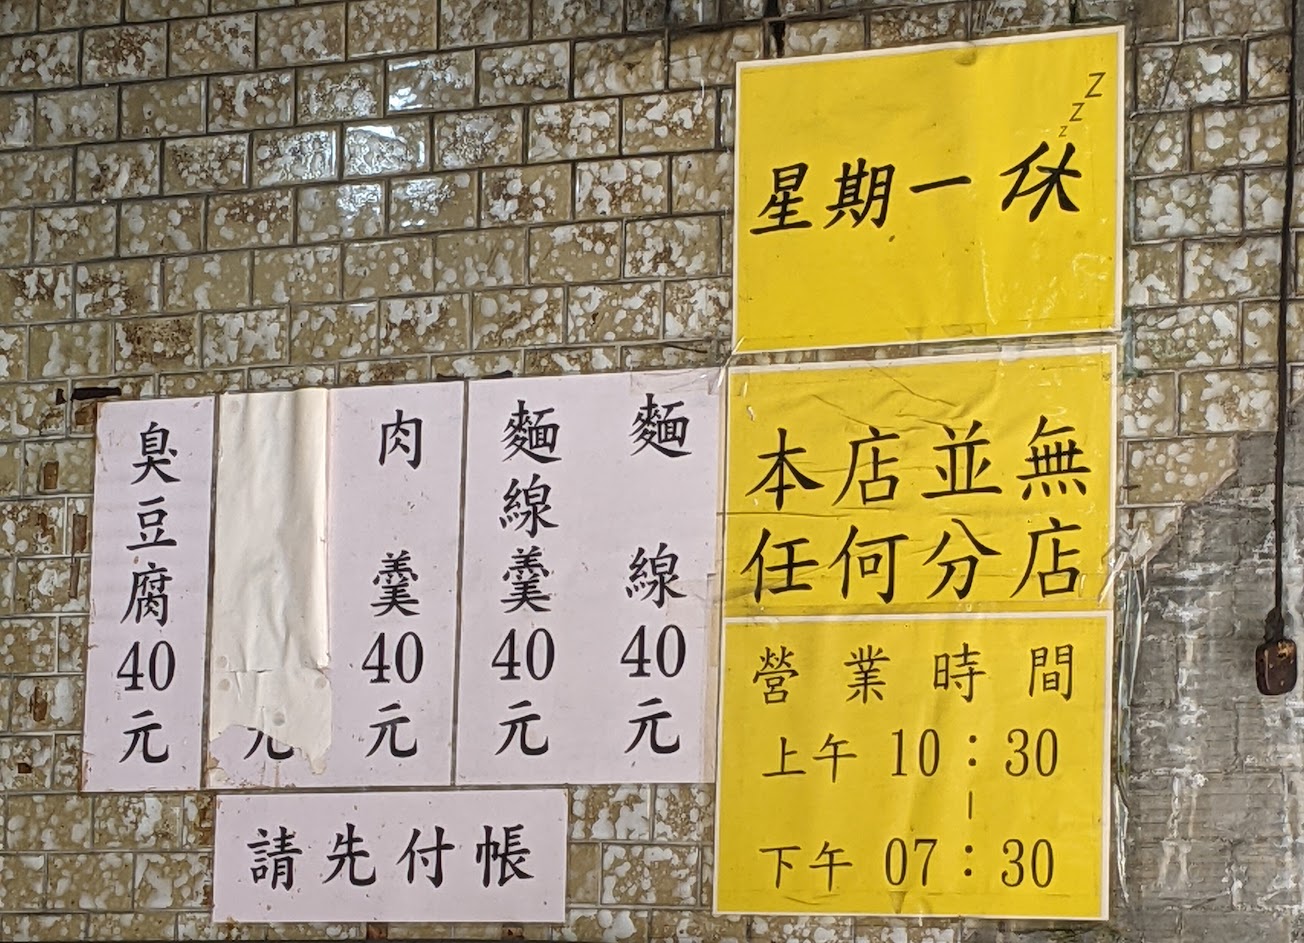 星期一休
z
z
Z
本店並無
任何分店
營業時間
上午 10:30
|
下午 07:30
麵線40元
麵線羹40元
肉羹40元
元
臭豆腐40元
請先付帳